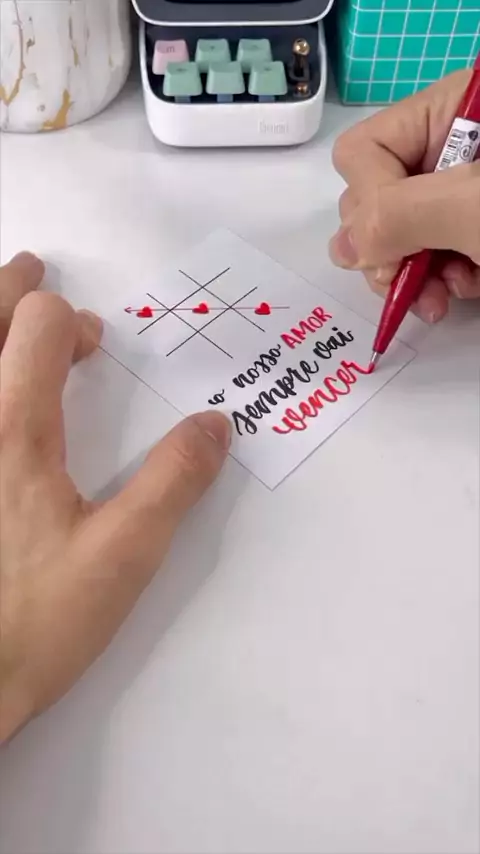 o nosso AMOR
sempre vai
vencer